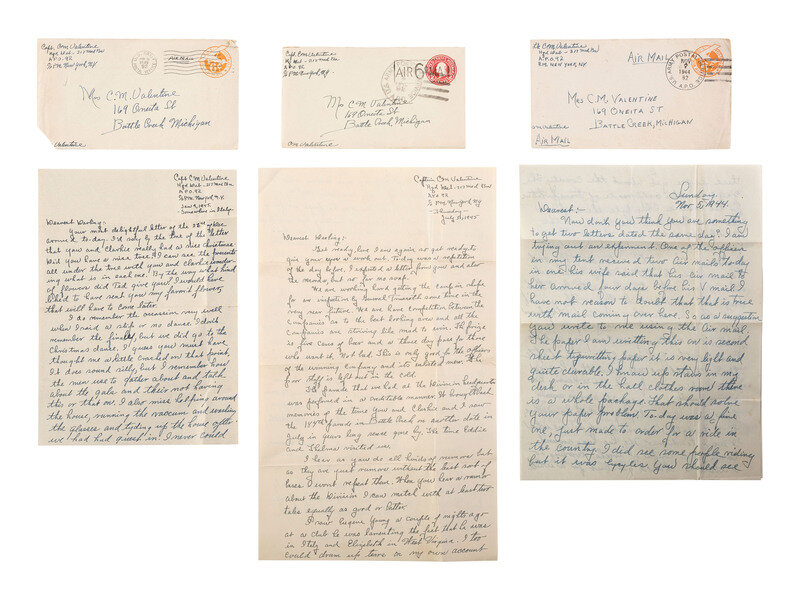 Capt. C.M. Valentine
Hqd. Det - 317 Med Bn
APO. 92
℅ PM. New York, N.Y.
AIR MAIL
Mrs C.M. Valentine
169 Oneita St
Battle Creek Michigan
CM Valentine
Capt C.M. Valentine
Hqd Det - 317 Med Bn
APO. 92
℅ P.M. New York, N.Y.
AIR 6
Mrs C.M. Valentine
169 Oneita St
Battle Creek, Michigan
CM Valentine
Lt C.M. Valentine
Hqd Det - 317 Med Bn
A.P.O. 92
P.M. NEW YORK, N.Y.
AIR MAIL
U.S. ARMY POSTAL
NOV
1944
92
A.P.O.
MRS C.M. VALENTINE
169 ONEITA ST
BATTLE CREEK, MICHIGAN
CM Valentine
AIR MAIL
Capt C.M. Valentine
Hqd Det - 317 Med Bn
APO. 92
℅ PM. New York N.Y.
1945
Somewhere in Italy
Dearest Darling:
Your most delightful letter of the
arrived to-day. I'd say by the tone of the letter
that you and Clarkie really had a nice christmas.
Did you have a nice tree. I can see the presents
all under the tree with you and Clarkie wonder-
ing what is in each one. By the way what kind
of flowers did Ted give you. I would have
liked to have sent you my favorite flower,
that will have to come later.
I do remember the occasion very well
when I said a slip or no dance. I don't
remember the finale, but we did go to the
Christmas dance. I guess you must have
thought me a little cracked on that point,
It does sound silly, but I remember how
the men use to gather about and talk
about the gals and their not having
this or that on. I also miss helping around
the house, running the vacuum and washing
the glasses and tyding up the house after
we had had guests in. I never could
Captain C.M. Valentine
Hqd Det - 317 Med Bn
APO. 92
℅ PM New York, NY
Thursday
July 1945
Dearest Darling:
Get ready, here I am again so get ready to
give your eyes a work out. Today was a repetition
of the day before. I expected a letter from you and also
the monday but no for no soap.
We are working hard getting the camp in shape
for an inspection by General
very near future. We are have competition between the
Companies as to the best looking area and all the
Companies are striving like mad to win. The prize
is five cases of beer and a three day pass for those
who want it. Not bad. This is only good for the officers
of the winning Company and the enlisted men, The
poor they is left out in the cold.
The dance that we had at the Division headquarters
was performed in a creditable manner. It brings back
memories of the time you and Clarkie and I saw
the 184th parade in Battle Creek on another date in
July in years long since gone by. The time Eddie
and Thelma visited us.
I hear as you do all kinds of rumors but
as they are just rumors without the least sort of
bases I won't repeat them. When you hear a rumor
about the Division I can match with at least two
tales equally as good or better.
I saw Eugene Young a couple of nights ago
at a club he was lamenting the fact that he was
in Italy and Elizabeth in West Virginia. I too
could drum up tears on my own account
Sunday
Nov 5, 1944.
Dearest:-
Now don't you think you are something
to get two letters dated the same day? I am
trying out an experiment. One of the officers
in my tent received two air mails today
in one his wife said that his air mail to
her arrived four days before his V mail. I
have not reason to doubt that that is true
with mail coming over here. So as a suggestion
you write to me using the air mail.
The paper I am writing this on is second
sheet typewriting paper it is very light and
quite durable. I know up stairs in my
desk or in the hall clothes room there
is a whole package. That should solve
your paper problem. To-day was a fine
one, just made to order for a ride in
the country. I did see some people riding
but it was bycycles. You should see